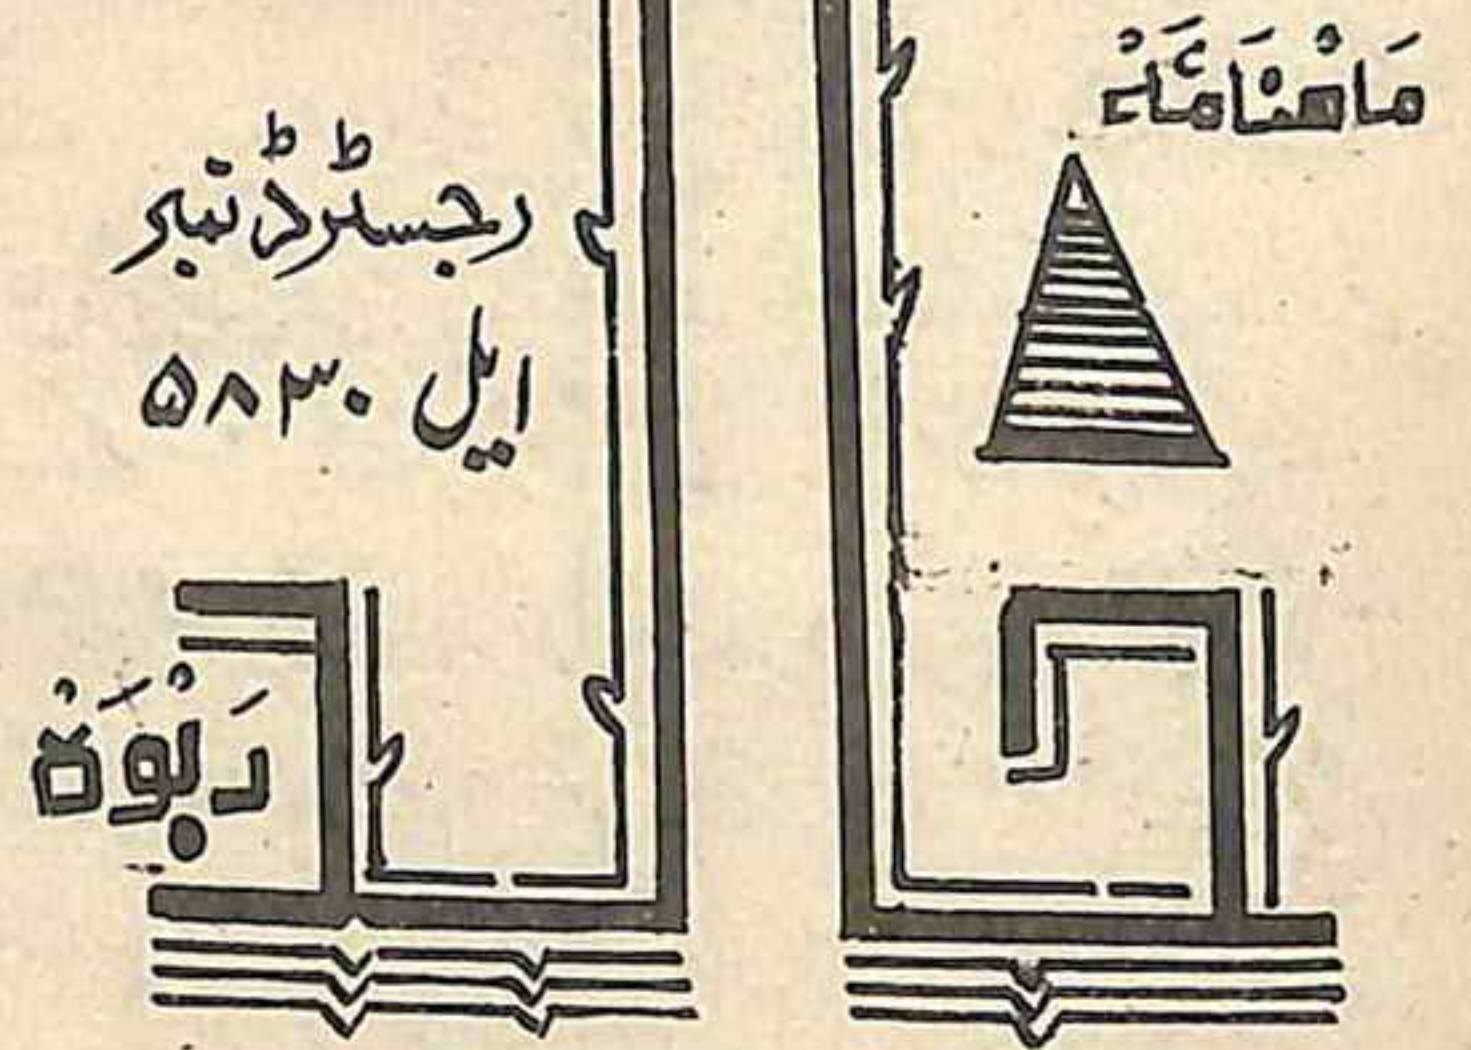 ماہنامہ
رجسٹرڈ نمبر
ایل ۵۸۳۰
خالد
ربوہ